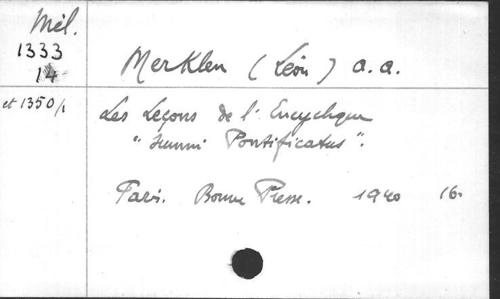 Mél.
1333
14
et 1350/1
Merklen (Léon) a.a.
Les Leçons de l'Encyclique
"Summi Pontificatus".
Paris. Bonne Presse. 1940 16°